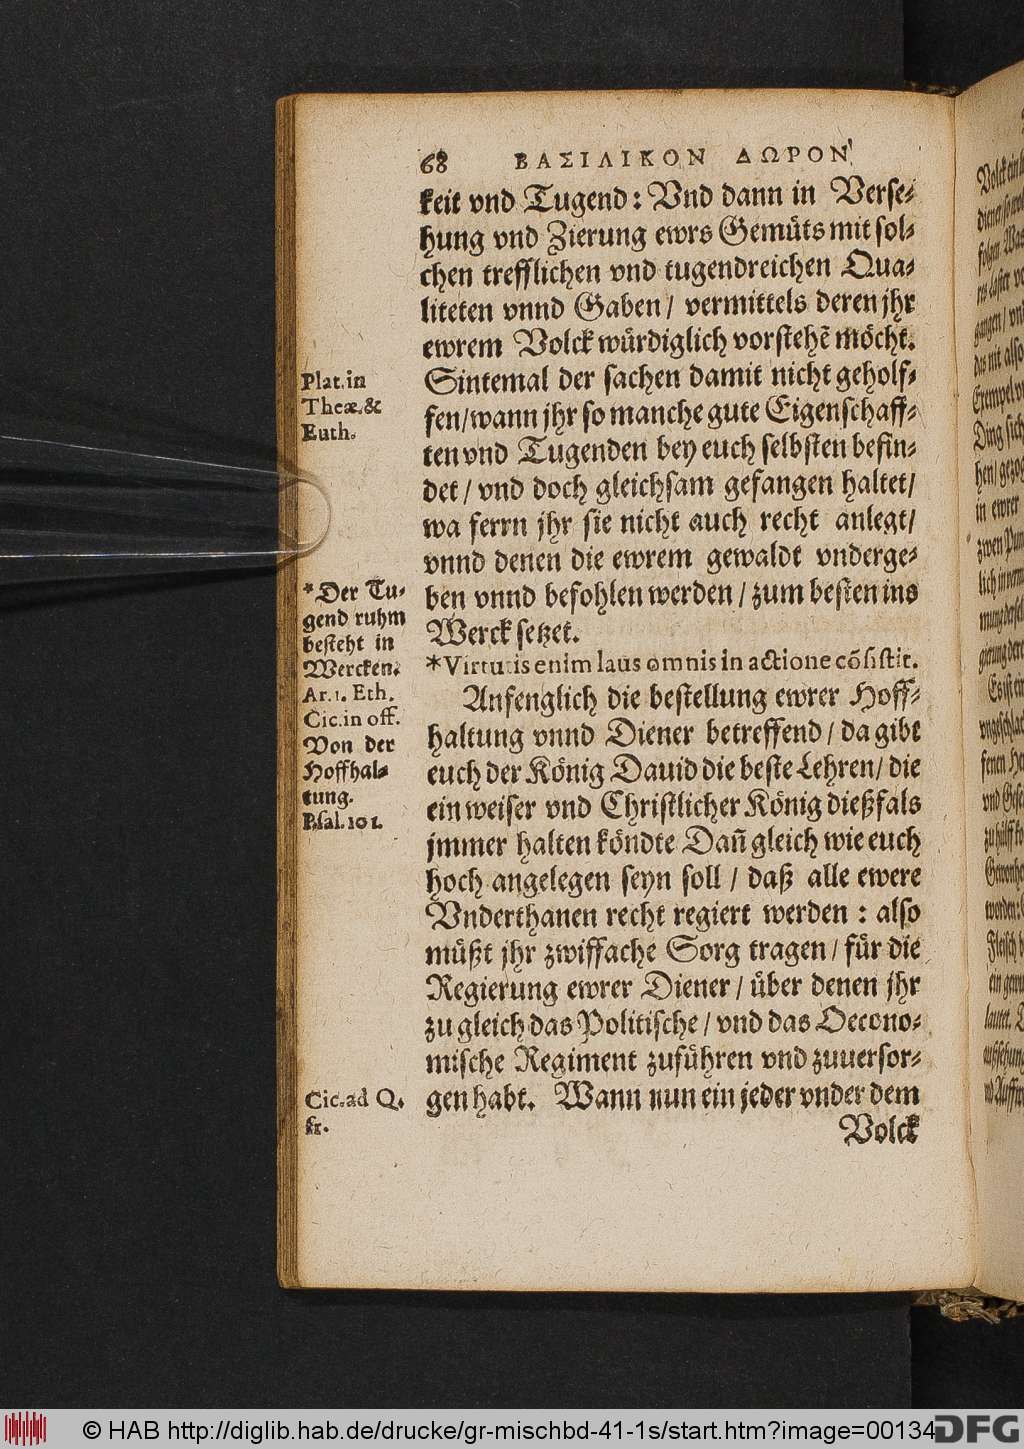 68 ΒΑΣΙΛΙΚΟΝ ΔΩΡΟΝ
keit vnd Tugend: Vnd dann in Verse-
hung vnd Zierung ewrs Gemüts mit sol-
chen trefflichen vnd tugendreichen Qua-
liteten vnnd Gaben/ vermittels deren jhr
ewrem Volck würdiglich vorstehē möcht.
Sintemal der sachen damit nicht geholf-
fen/wann jhr so manche gute Eigenschaff-
ten vnd Tugenden bey euch selbsten befin-
det/ vnd doch gleichsam gefangen haltet/
wa ferrn jhr sie nicht auch recht anlegt/
vnnd denen die ewrem gewaldt vnderge-
ben vnnd befohlen werden/ zum besten ins
Werck setzet.
*Virtutis enim laus omnis in actione cōsistit.
Anfenglich die bestellung ewrer Hoff-
haltung vnnd Diener betreffend/ da gibt
euch der König Dauid die beste Lehren/ die
ein weiser vnd Christlicher König dießfals
jmmer halten köndte Dañ gleich wie euch
hoch angelegen seyn soll/ daß alle ewere
Vnderthanen recht regiert werden: also
müßt jhr zwiffache Sorg tragen/ für die
Regierung ewrer Diener/ über denen jhr
zu gleich das Politische/ vnd das Oecono-
mische Regiment zuführen vnd zuuersor-
gen habt. Wann nun ein jeder vnder dem
Volck
Plat. in
Theæ. &
Euth.
*Der Tu-
gend ruhm
besteht in
Wercken.
Ar. 1. Eth.
Cic. in off.
Von der
Hoffhal-
tung.
Psal. 101.
Cic. ad Q.
fr.
© HAB http://diglib.hab.de/drucke/gr-mischbd-41-1s/start.htm?image=00134
DFG